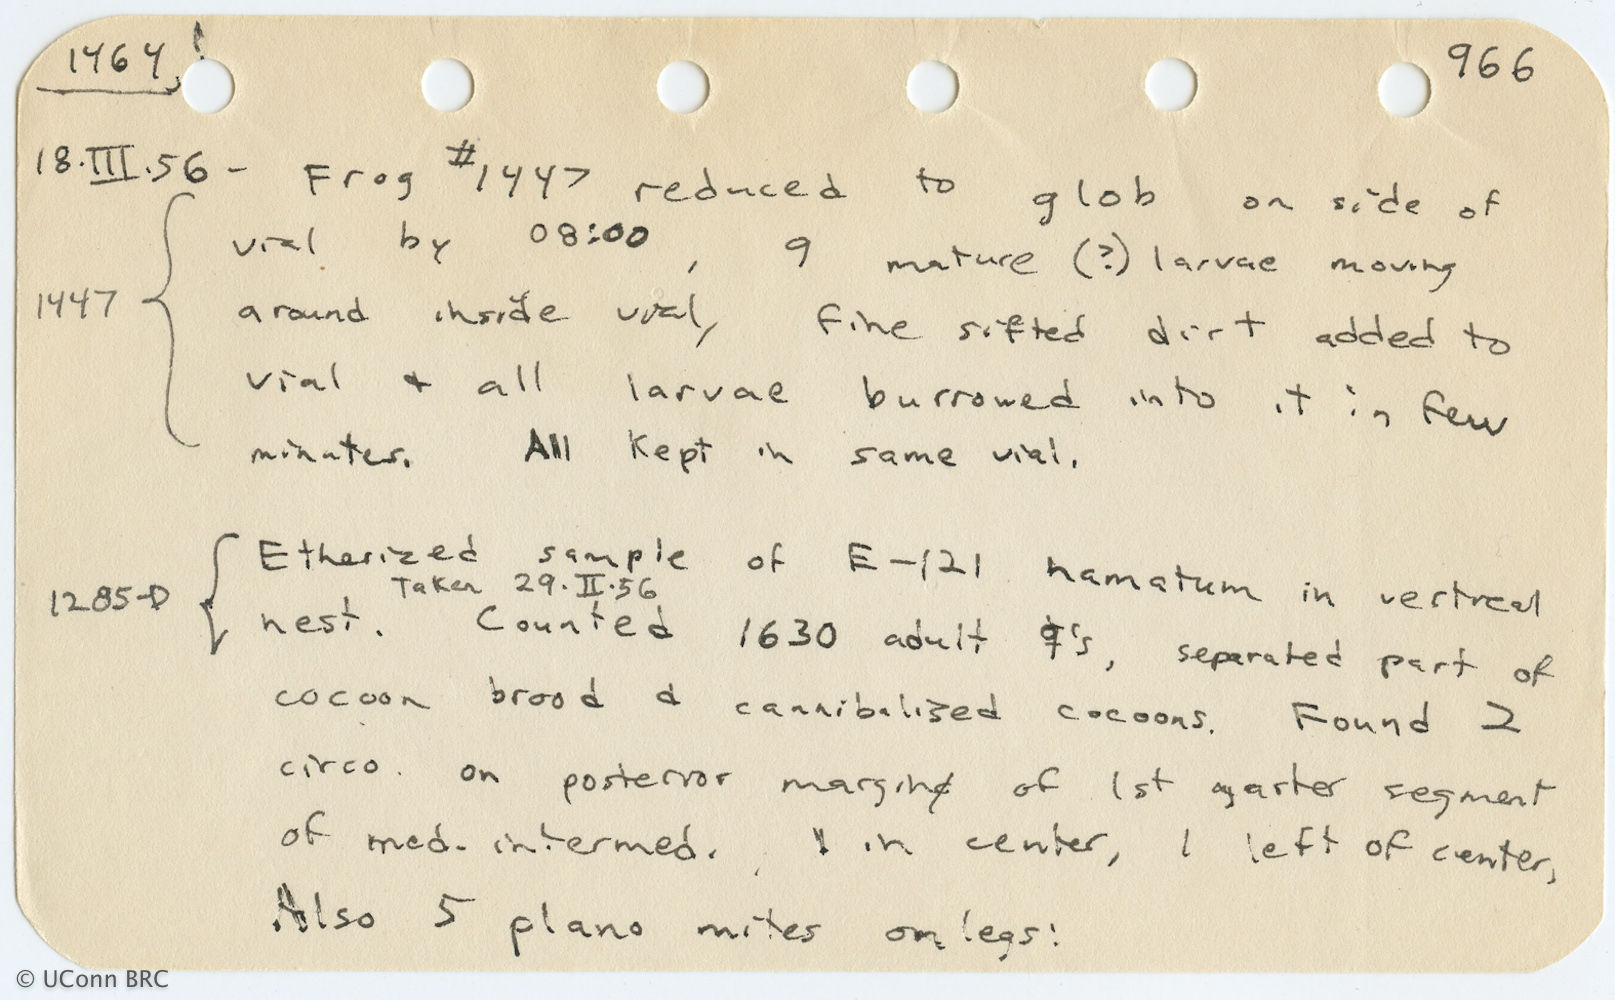 1464!
966
18.III.56 - Frog #1447 reduced to glob on side of
vial by 08:00, 9 mature (?) larvae moving
1447
around inside vial, fine sifted dirt added to
vial & all larvae burrowed into it in few
minutes. All kept in same vial.
1285-D
Etherized sample of E-121 hamatum in vertical
Taken 29.II.56
nest. Counted 1630 adult ☿'s, separated part of
cocoon brood & cannibalized cocoons. Found 2
circo. on posterior margin of 1st gaster segment
of med. intermed. 1 in center, 1 left of center,
Also 5 plano mites on legs:
© UConn BRC